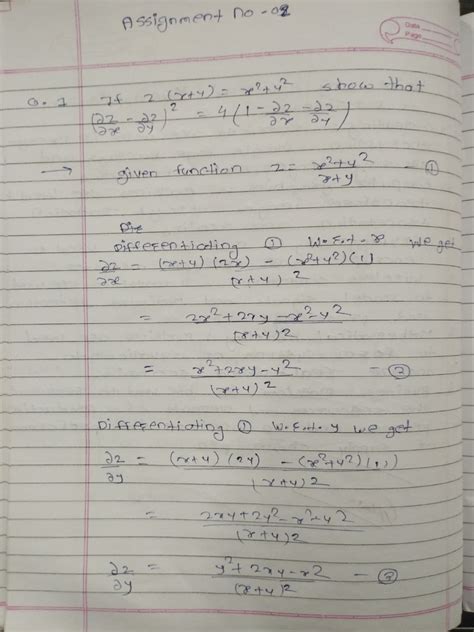 Assignment no-02
Date
Page
Q.1 If z (x+y) = x²+y² show that
(∂z/∂x - ∂z/∂y)² = 4 (1 - ∂z/∂x - ∂z/∂y)
→ given function z = x²+y² / x+y - ①
Differentiating ① w.r.t. x we get
∂z/∂x = (x+y) (2x) - (x²+y²)(1) / (x+y)²
= 2x²+2xy-x²-y² / (x+y)²
= x²+2xy-y² / (x+y)² - ②
Differentiating ① w.r.t. y we get
∂z/∂y = (x+y) (2y) - (x²+y²)(1) / (x+y)²
= 2xy+2y²-x²-y² / (x+y)²
∂z/∂y = y²+2xy-x² / (x+y)² - ③